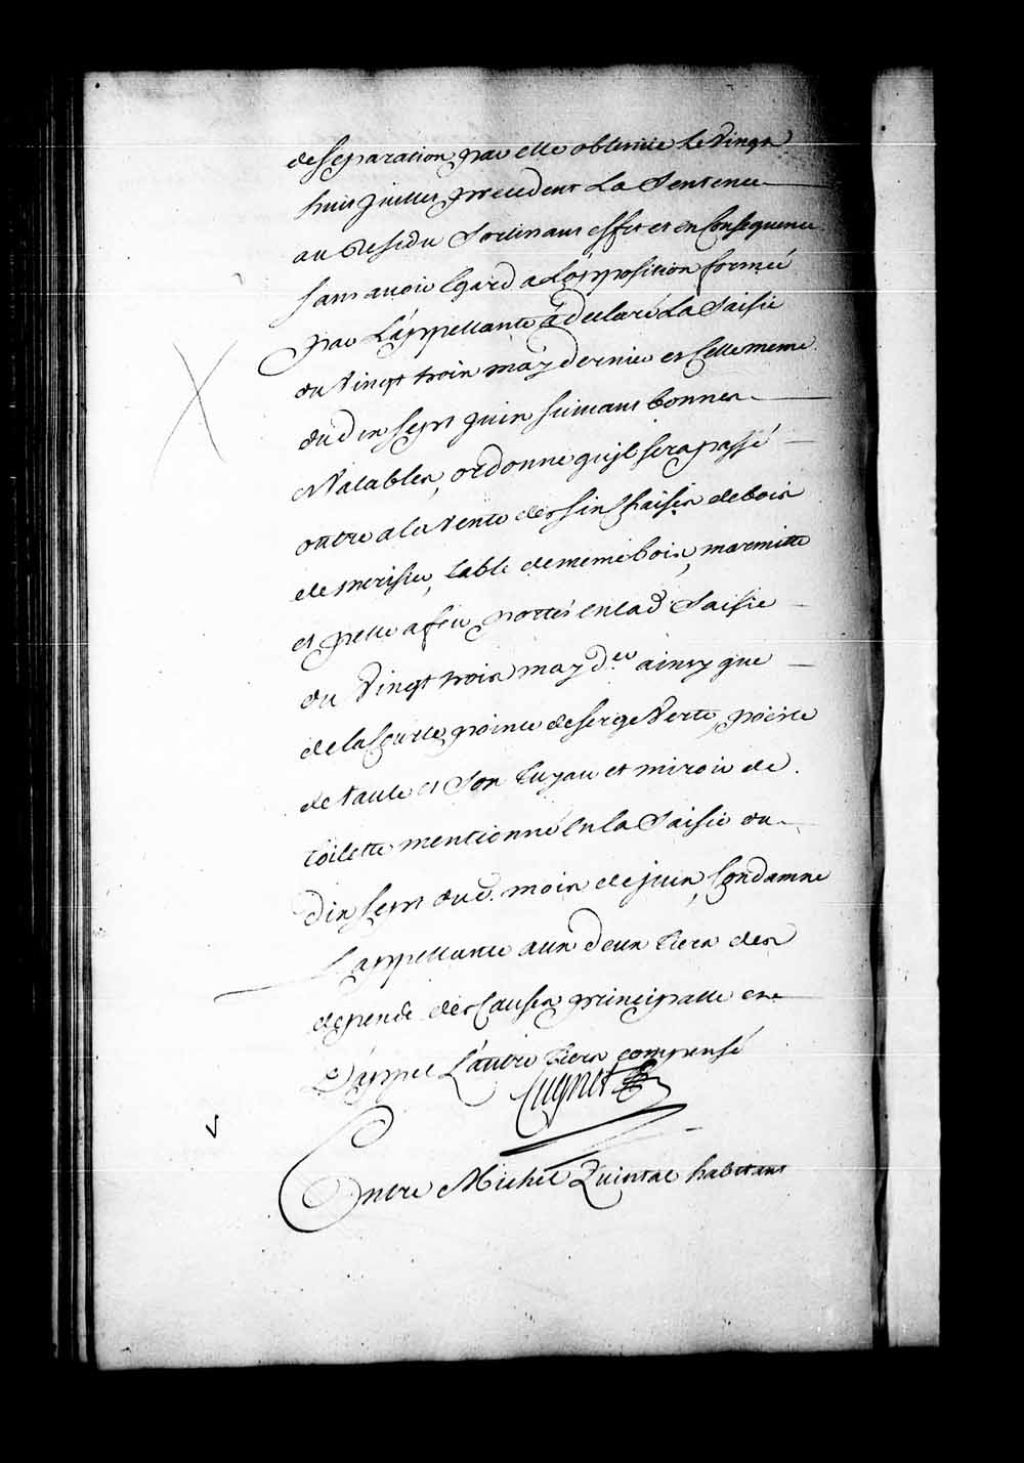 de separation par elle obtenüe le Vingt
huit Juillet precedent La Sentence
au Residu Sortissant effet et en Consequence
sans avoir Egard a L'opposition formée
par L'appellante a declaré La Saisie
du Vingt trois may dernier et Celle meme
du dix Sept Juin Suivant bonnes
et Valables, ordonne qu'jl sera passé
outre a la Vente des Six Chaises de bois
de merisier, table de meme bois, marmitte
et pelle a feu portés en lad. Saisie
du Vingt trois may d.er ainsy que
de la Courte pointe de serge Verte, poësle
de taule et Son tuyau et miroir de
toilette mentionné en la Saisie du
dix Sept dud. mois de juin, Condamne
L'appellante aux deux tiers des
depends des Causes principalle et
D'appel L'autre tiers compensé
Cugnet
Entre Michel Quintal habitant